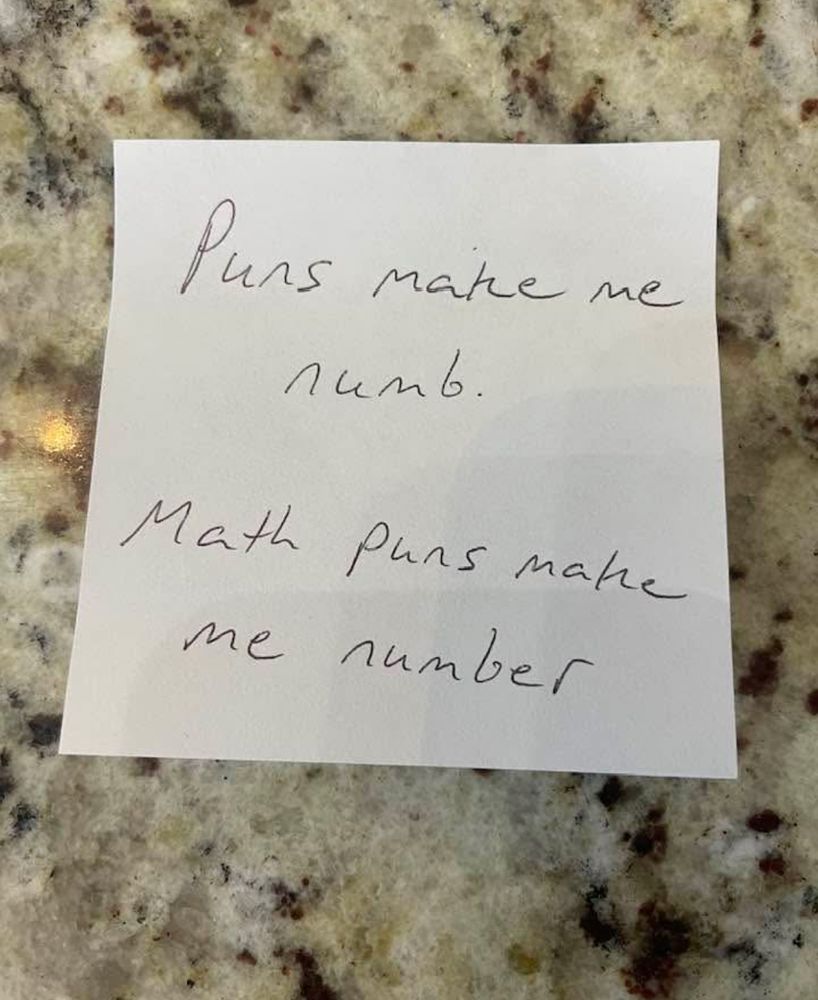 Puns make me
numb.
Math puns make
me number